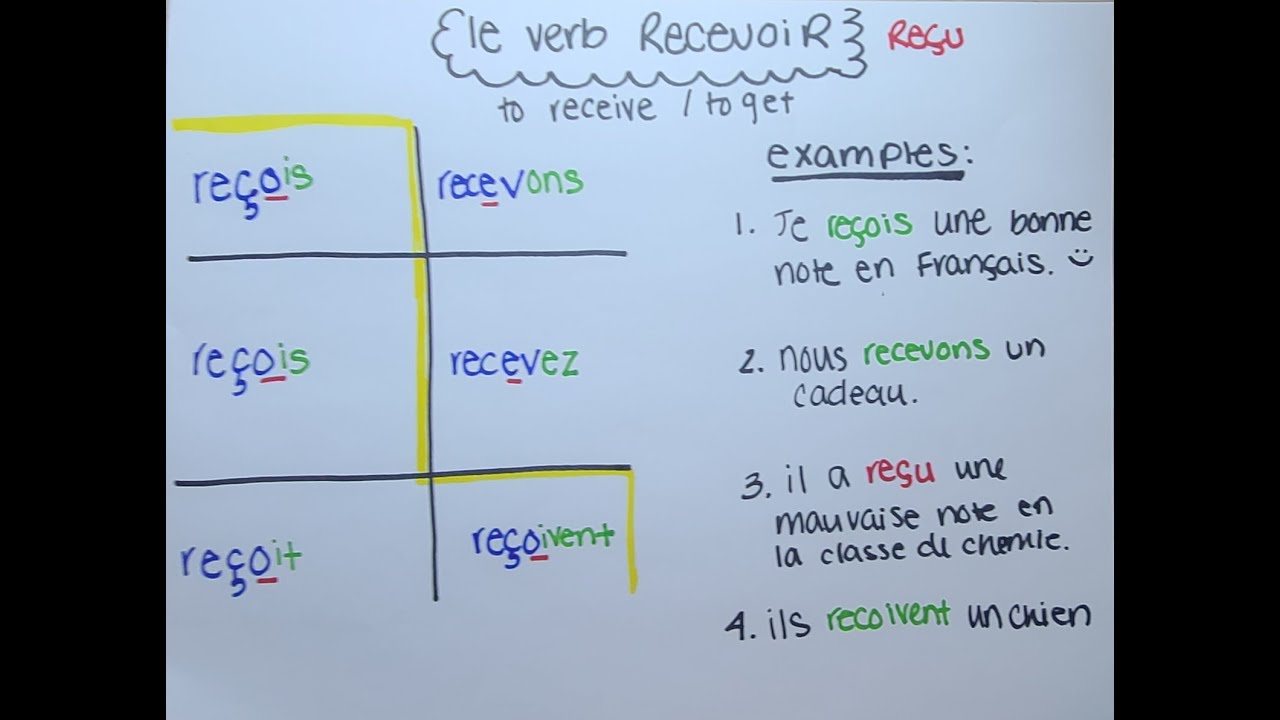 {le verb RecevoiR} Reçu
to receive / to get
reçois recevons
reçois recevez
reçoit reçoivent
examples:
1. Je reçois une bonne
note en Français. :)
2. nous recevons un
cadeau.
3. il a reçu une
mauvaise note en
la classe de chemie.
4. ils recoivent un chien